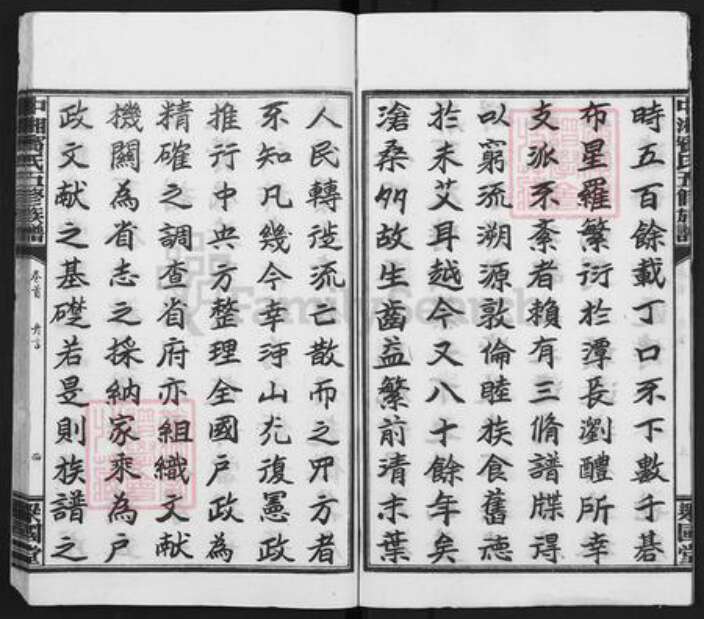 時五百餘載丁口不下數千碁
布星羅繁衍於潭長瀏醴所幸
支派不紊者賴有三脩譜牒得
以窮流溯源敦倫睦族食舊德
於未艾耳越今又八十餘年矣
滄桑如故生齒益繁前清末葉
人民轉徙流亡散而之四方者
不知凡幾今幸河山光復憲政
推行中央方整理全國戶政為
精確之調查省府亦組織文獻
機關為省志之採納家乘為戶
政文獻之基礎若是則族譜之
卷首
FamilySearch